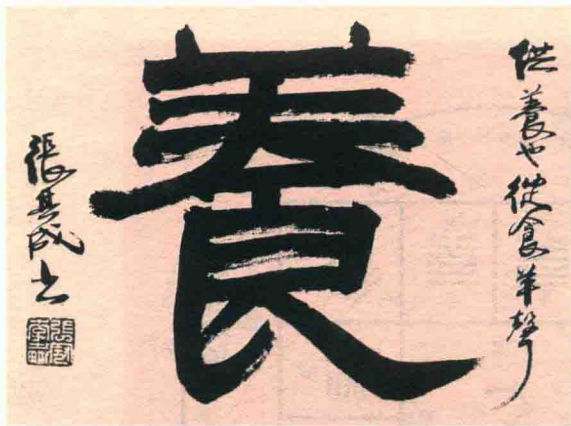 供養也從食羊聲
養
張其成書